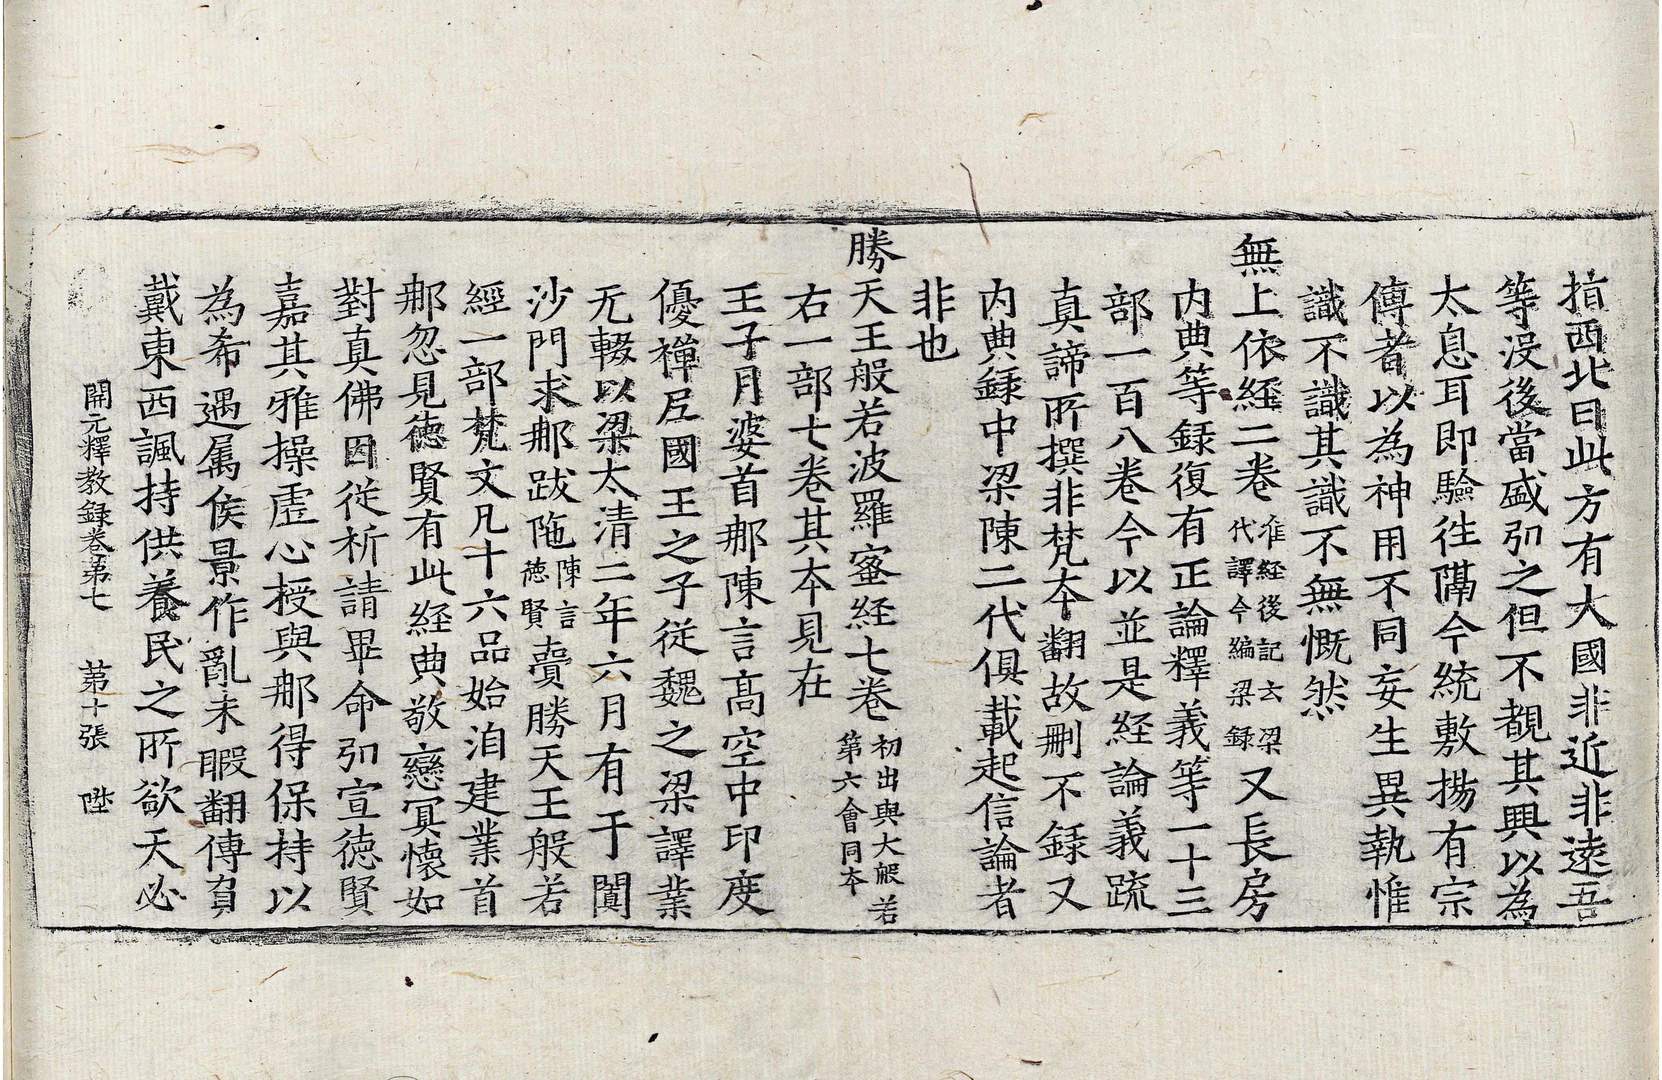 指西北曰此方有大國非近非遠吾
等没後當盛弘之但不覩其興以為
太息耳即驗徃隔今統敷揚有宗
傳者以為神用不同妄生異執惟
識不識其識不無慨然
無上依経二卷准経後記云梁代譯今編梁録又長房
内典等録復有正論釋義等一十三
部一百八卷今以並是経論義疏
真諦所撰非梵夲翻故删不録又
内典録中梁陳二代俱載起信論者
非也
勝天王般若波羅蜜経七卷初出與大般若第六會同夲
右一部七卷其夲見在
王子月婆首那陳言高空中印度
優禪尼國王之子従魏之梁譯業
无輟以梁太清二年六月有于闐
沙門求那跋陁陳言徳賢賷勝天王般若
經一部梵文凡十六品始洎建業首
那忽見徳賢有此経典敬戀冥懷如
對真佛因従祈請畢命弘宣徳賢
嘉其雅操虚心授與那得保持以
為希遇属侯景作亂未暇翻傳負
戴東西諷持供養民之所欲天必
開元釋教録卷第七 第十張 陞